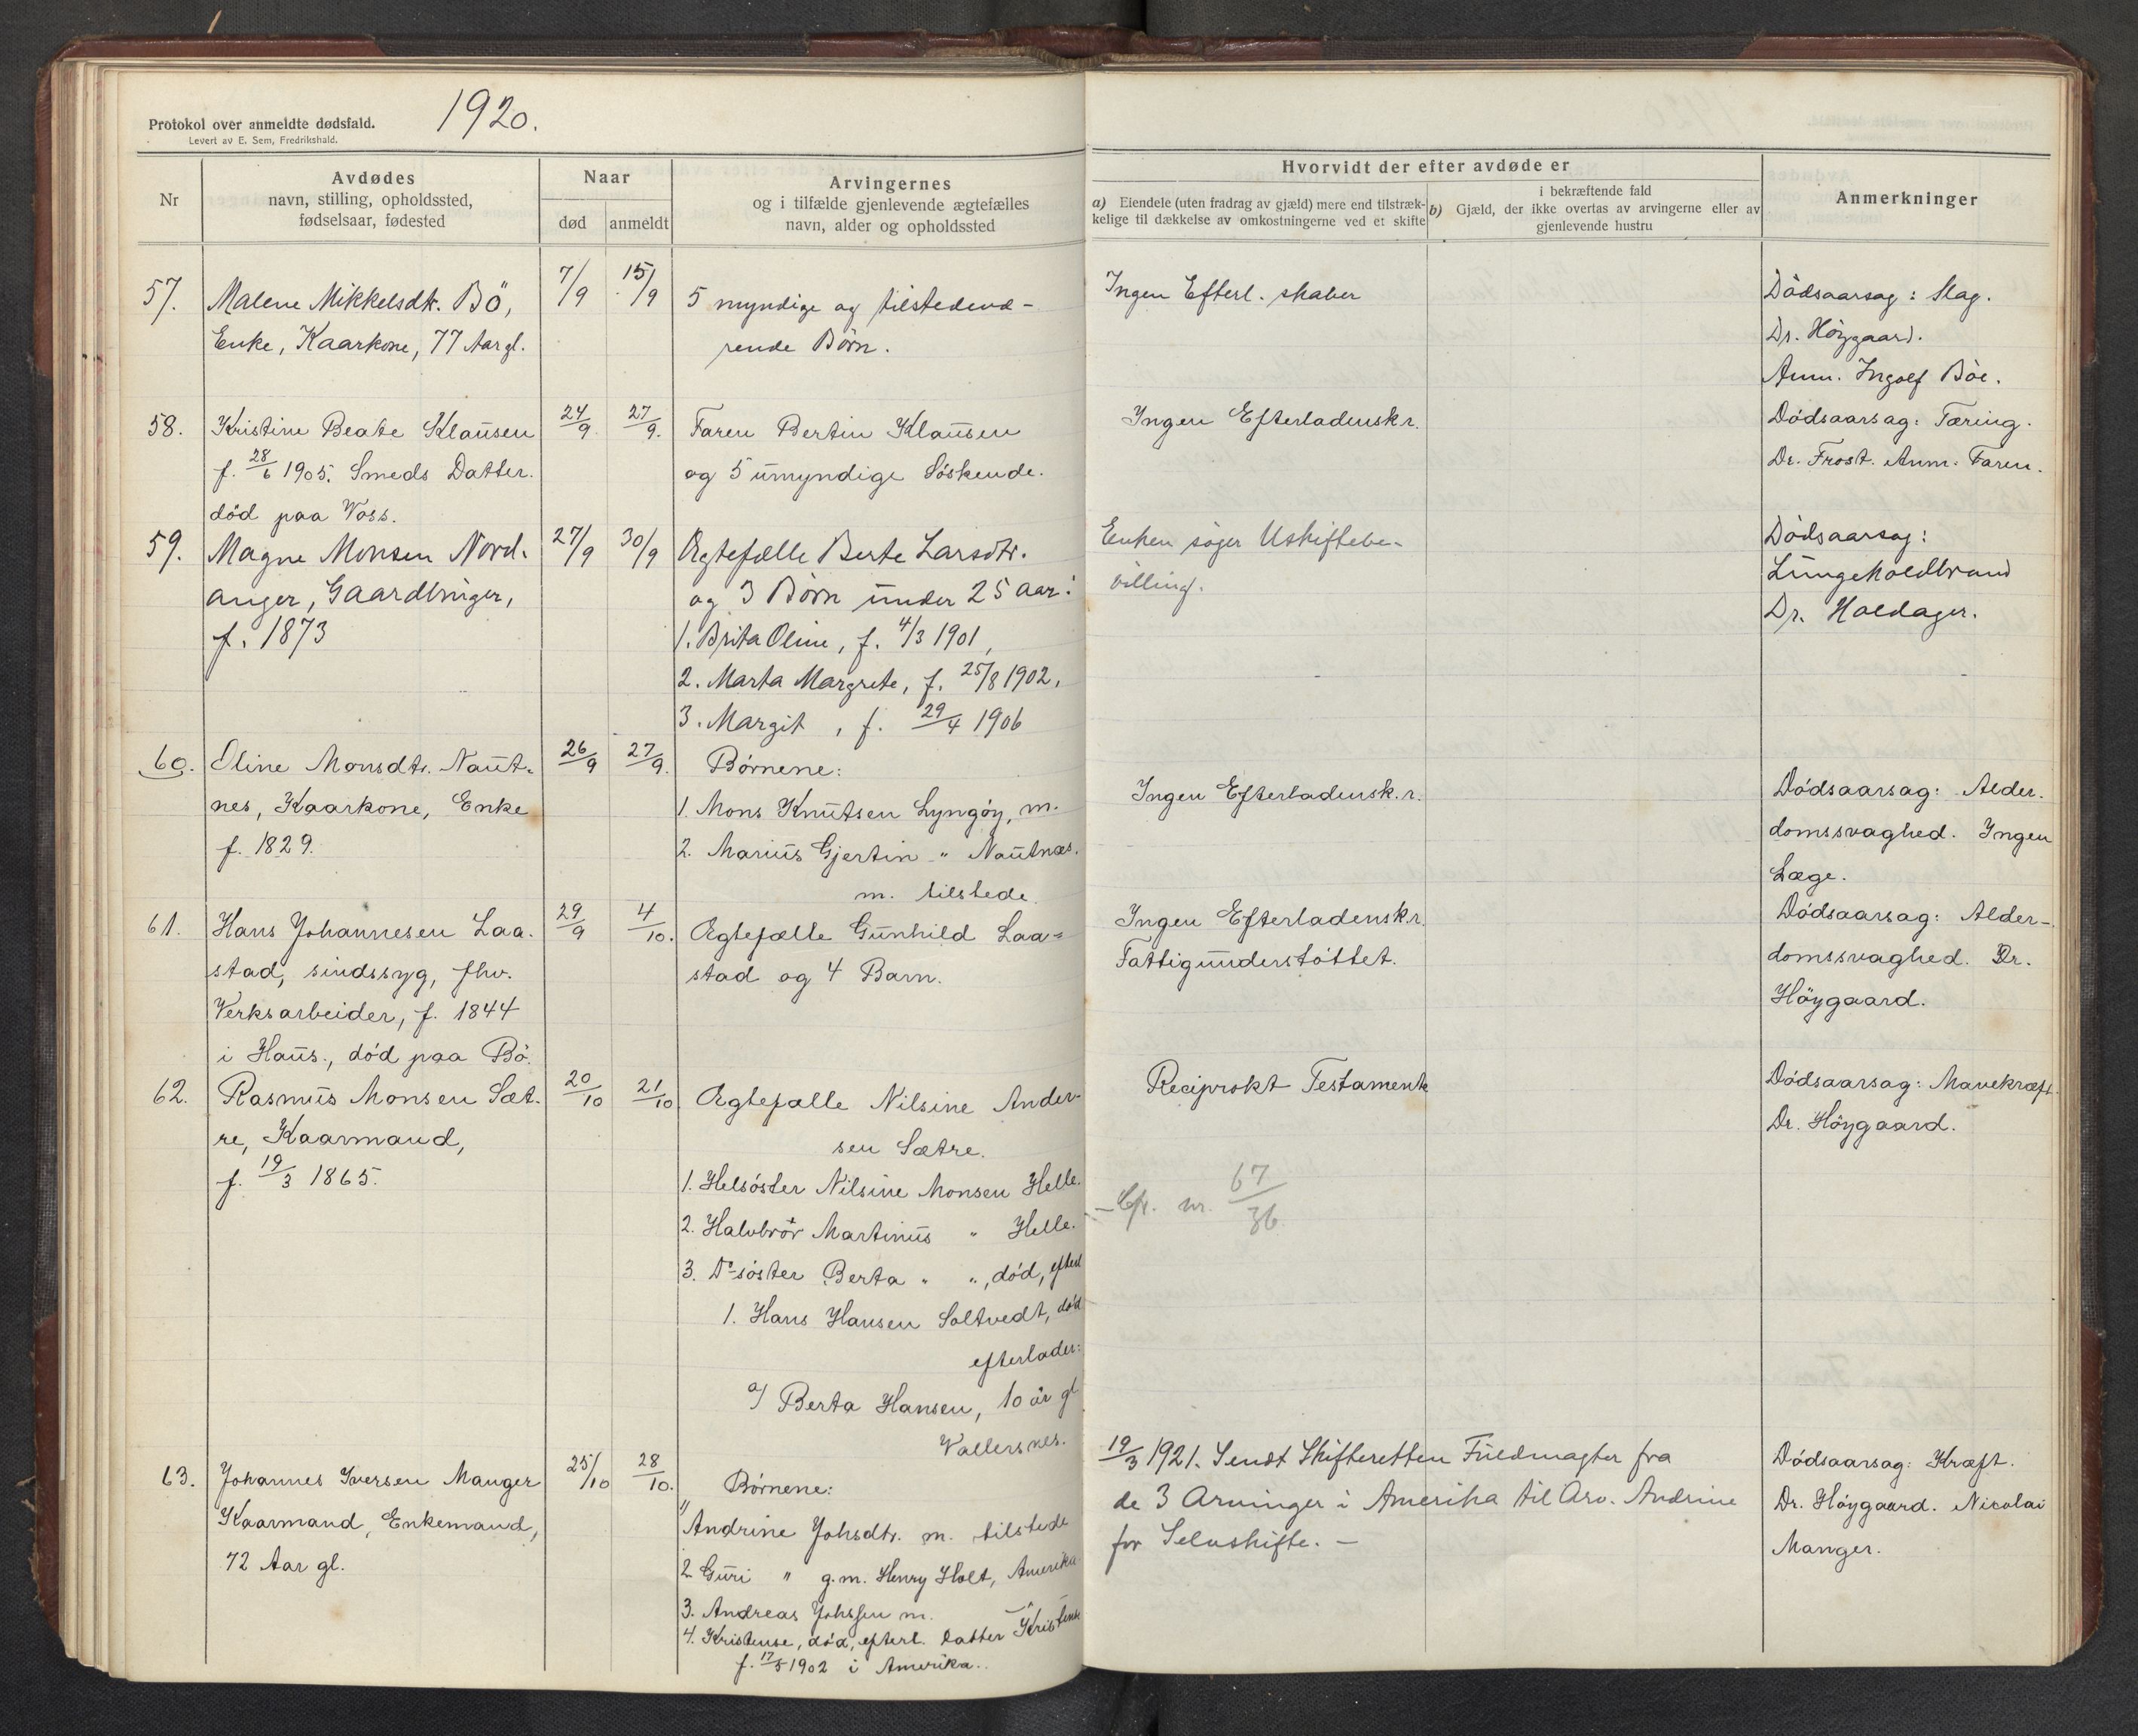 Protokol over anmeldte dødsfald.
Levert av E. Sem, Fredrikshald.
1920.
Nr
Avdødes
navn, stilling, opholdssted,
fødselsaar, fødested
Naar
død
anmeldt
Arvingernes
og i tilfælde gjenlevende ægtefælles
navn, alder og opholdssted
Hvorvidt der efter avdøde er
a) Eiendele (uten fradrag av gjæld) mere end tilstræk-
kelige til dækkelse av omkostningerne ved et skifte
i bekræftende fald
b) Gjæld, der ikke overtas av arvingerne eller av
gjenlevende hustru
Anmerkninger
57.
Malene Mikkelsdtr. Bö,
Enke, Kaarkone, 77 Aar gl.
7/9
15/9
5 myndige og tilstedevæ-
rende Børn.
Ingen Efterl. skaber
Dödsaarsag: Slag.
Dr. Höygaard.
Anm. Ingolf Böe.
58.
Kristine Beate Klausen
f. 28/6 1905. Smeds Datter.
död paa Voss.
24/9.
27/9.
Faren Bertin Klausen
og 5 umyndige Söskende.
Ingen Efterladensk.r.
Dödsaarsag: Tæring.
Dr. Frost. Anm: Faren.
59.
Magne Monsen Nord-
anger, Gaardbruger,
f. 1873
27/9
30/9
Ægtefælle Berte Larsdtr.
og 3 Börn under 25 aar:
1. Brita Oline, f. 4/3 1901,
2. Marta Margrete, f. 25/8 1902,
3. Margit, f. 29/4 1906
Enken söger Uskiftebe-
villing.
Dödsaarsag:
Lungekoldbrand
Dr. Holdager.
60.
Oline Monsdtr. Naut-
nes, Kaarkone, Enke
f. 1829.
26/9
27/9.
Børnene:
1. Mons Knutsen Lyngöy, m.
2. Marius Gjertin " Nautnes.
m. tilstede.
Ingen Efterladensk.r.
Dödsaarsag: Alder-
domssvaghed. Ingen
Læge.
61.
Hans Johannesen Laa-
stad, sindssyg, fhv.
Verksarbeider, f. 1844
i Haus., död paa Bö.
29/9
4/10.
Ægtefælle Gunhild Laa-
stad og 4 Barn.
Ingen Efterladensk.r.
Fattigunderstöttet.
Dödsaarsag: Alder-
domssvaghed. Dr.
Höygaard.
62.
Rasmus Monsen Sæt-
re, Kaarmand,
f. 19/3 1865.
20/10
21/10
Ægtefælle Nilsine Ander-
sen Sætre.
1. Helsöster Nilsine Monsen Helle.
2. Halvbror Martinus " Helle.
3. Do söster Berta " ", död, efterl
1. Hans Hansen Soltvedt, död
efterlader:
a/ Berta Hansen, 10 år gl
Vallersnes.
Reciprokt Testament
- Cfr. nr. 67/36
Dödsaarsag: Mavekræft.
Dr. Höygaard.
63.
Johannes Iversen Manger
Kaarmand, Enkemand,
72 Aar gl.
25/10
28/10.
Børnene:
1/ Andrine Johsdtr. m. tilstede
2 Guri " g.m. Henry Holt, Amerika
3. Andreas Johssen m. - " -
4. Kristense, död, efterl. Datter Kristense
f. 17/5 1902 i Amerika.
19/3 1921. Sendt Skifteretten Fuldmagter fra
de 3 Arvinger i Amerika til Arv. Andrine
for Selvskifte. -
Dödsaarsag: Kræft.
Dr. Höygaard. Nicolai
Manger.